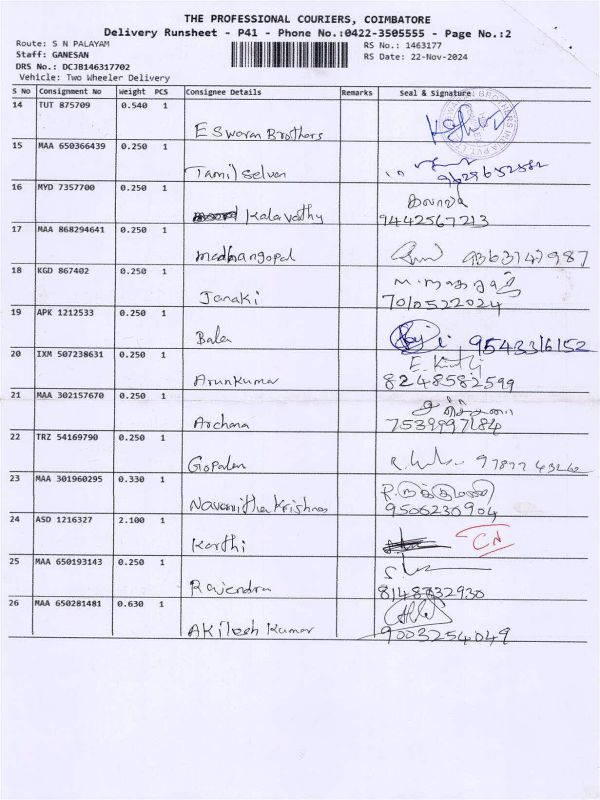 THE PROFESSIONAL COURIERS, COIMBATORE
Delivery Runsheet - P41 - Phone No.:0422-3505555 - Page No.:2
Route: S N PALAYAM
RS No.: 1463177
Staff: GANESAN
RS Date: 22-Nov-2024
DRS No.: DCJB146317702
Vehicle: Two Wheeler Delivery
S No Consignment No Weight PCS Consignee Details Remarks Seal & Signature
14 TUT 875709 0.540 1
Eswaran Brothers
15 MAA 650366439 0.250 1
Tamil Selvan
16 MYD 7357700 0.250 1
Kalavathy 9442567213
17 MAA 868294641 0.250 1
Madhangopal
18 KGD 867402 0.250 1
Janaki 7010522024
19 APK 1212533 0.250 1
Bala 9543316152
20 IXM 507238631 0.250 1
Arunkumar 8248582599
21 MAA 302157670 0.250 1
Archana 7539997184
22 TRZ 54169790 0.250 1
Gopalan
23 MAA 301960295 0.330 1
Navanitha Krishnan 9506230904
24 ASD 1216327 2.100 1
Karthi CN
25 MAA 650193143 0.250 1
Rajendra 8148732930
26 MAA 650281481 0.630 1
Akilesh Kumar 9003254049